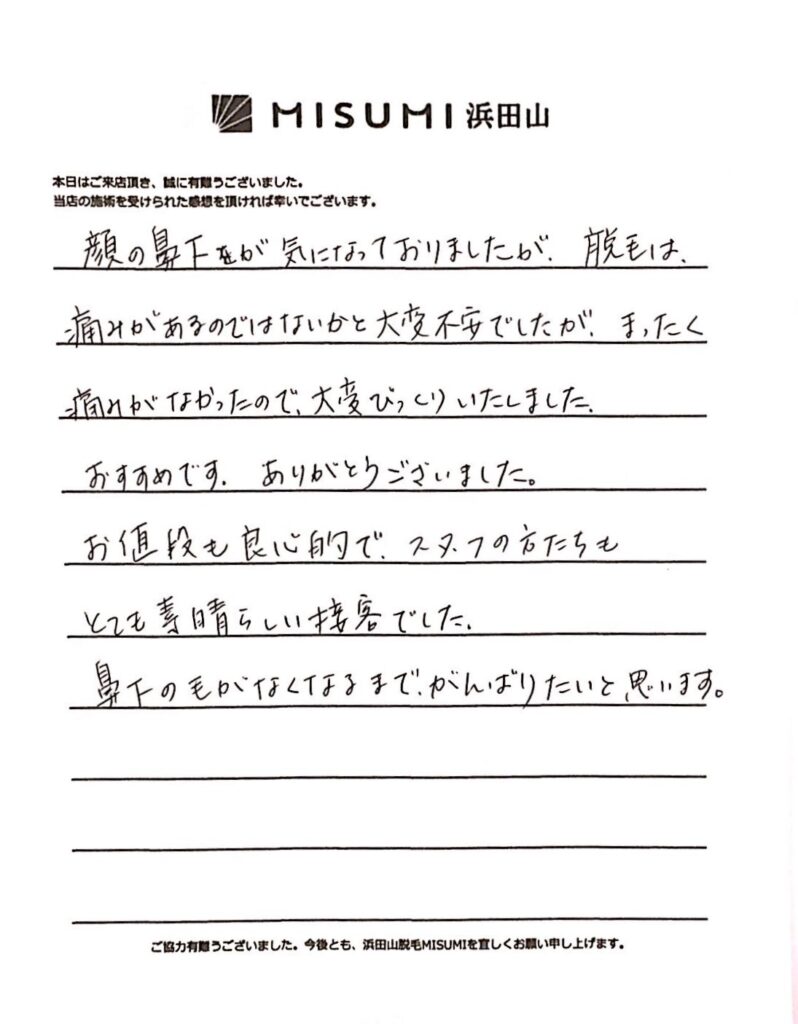 MISUMI 浜田山
本日はご来店頂き、誠に有難うございました。
当店の施術を受けられた感想を頂ければ幸いでございます。
顔の鼻下毛が気になっておりましたが、脱毛は、
痛みがあるのではないかと大変不安でしたが、まったく
痛みがなかったので、大変びっくりいたしました。
おすすめです。ありがとうございました。
お値段も良心的で、スタッフの方たちも
とても素晴らしい接客でした。
鼻下の毛がなくなるまで、がんばりたいと思います。
ご協力有難うございました。今後とも、浜田山脱毛MISUMIを宜しくお願い申し上げます。